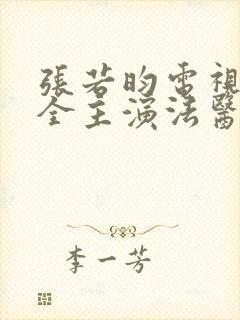 張若昀電視
全主演法醫
李一芳